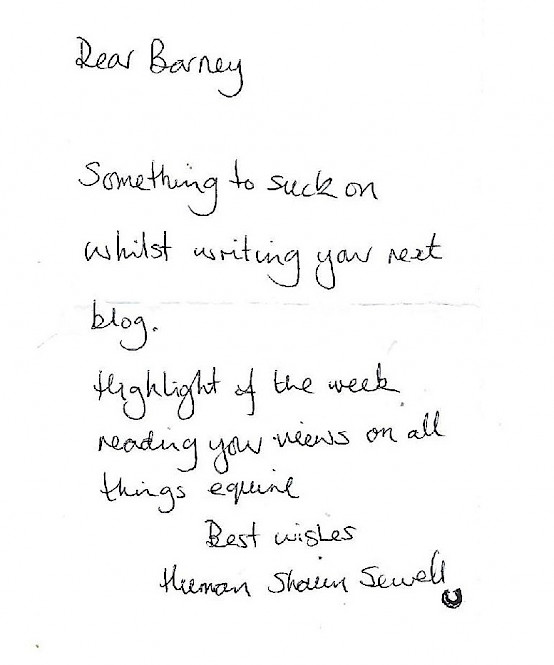 Dear Barney
Something to suck on
whilst writing your next
blog.
Highlight of the week
reading your views on all
things equine
Best wishes
Human Shaun Sewell